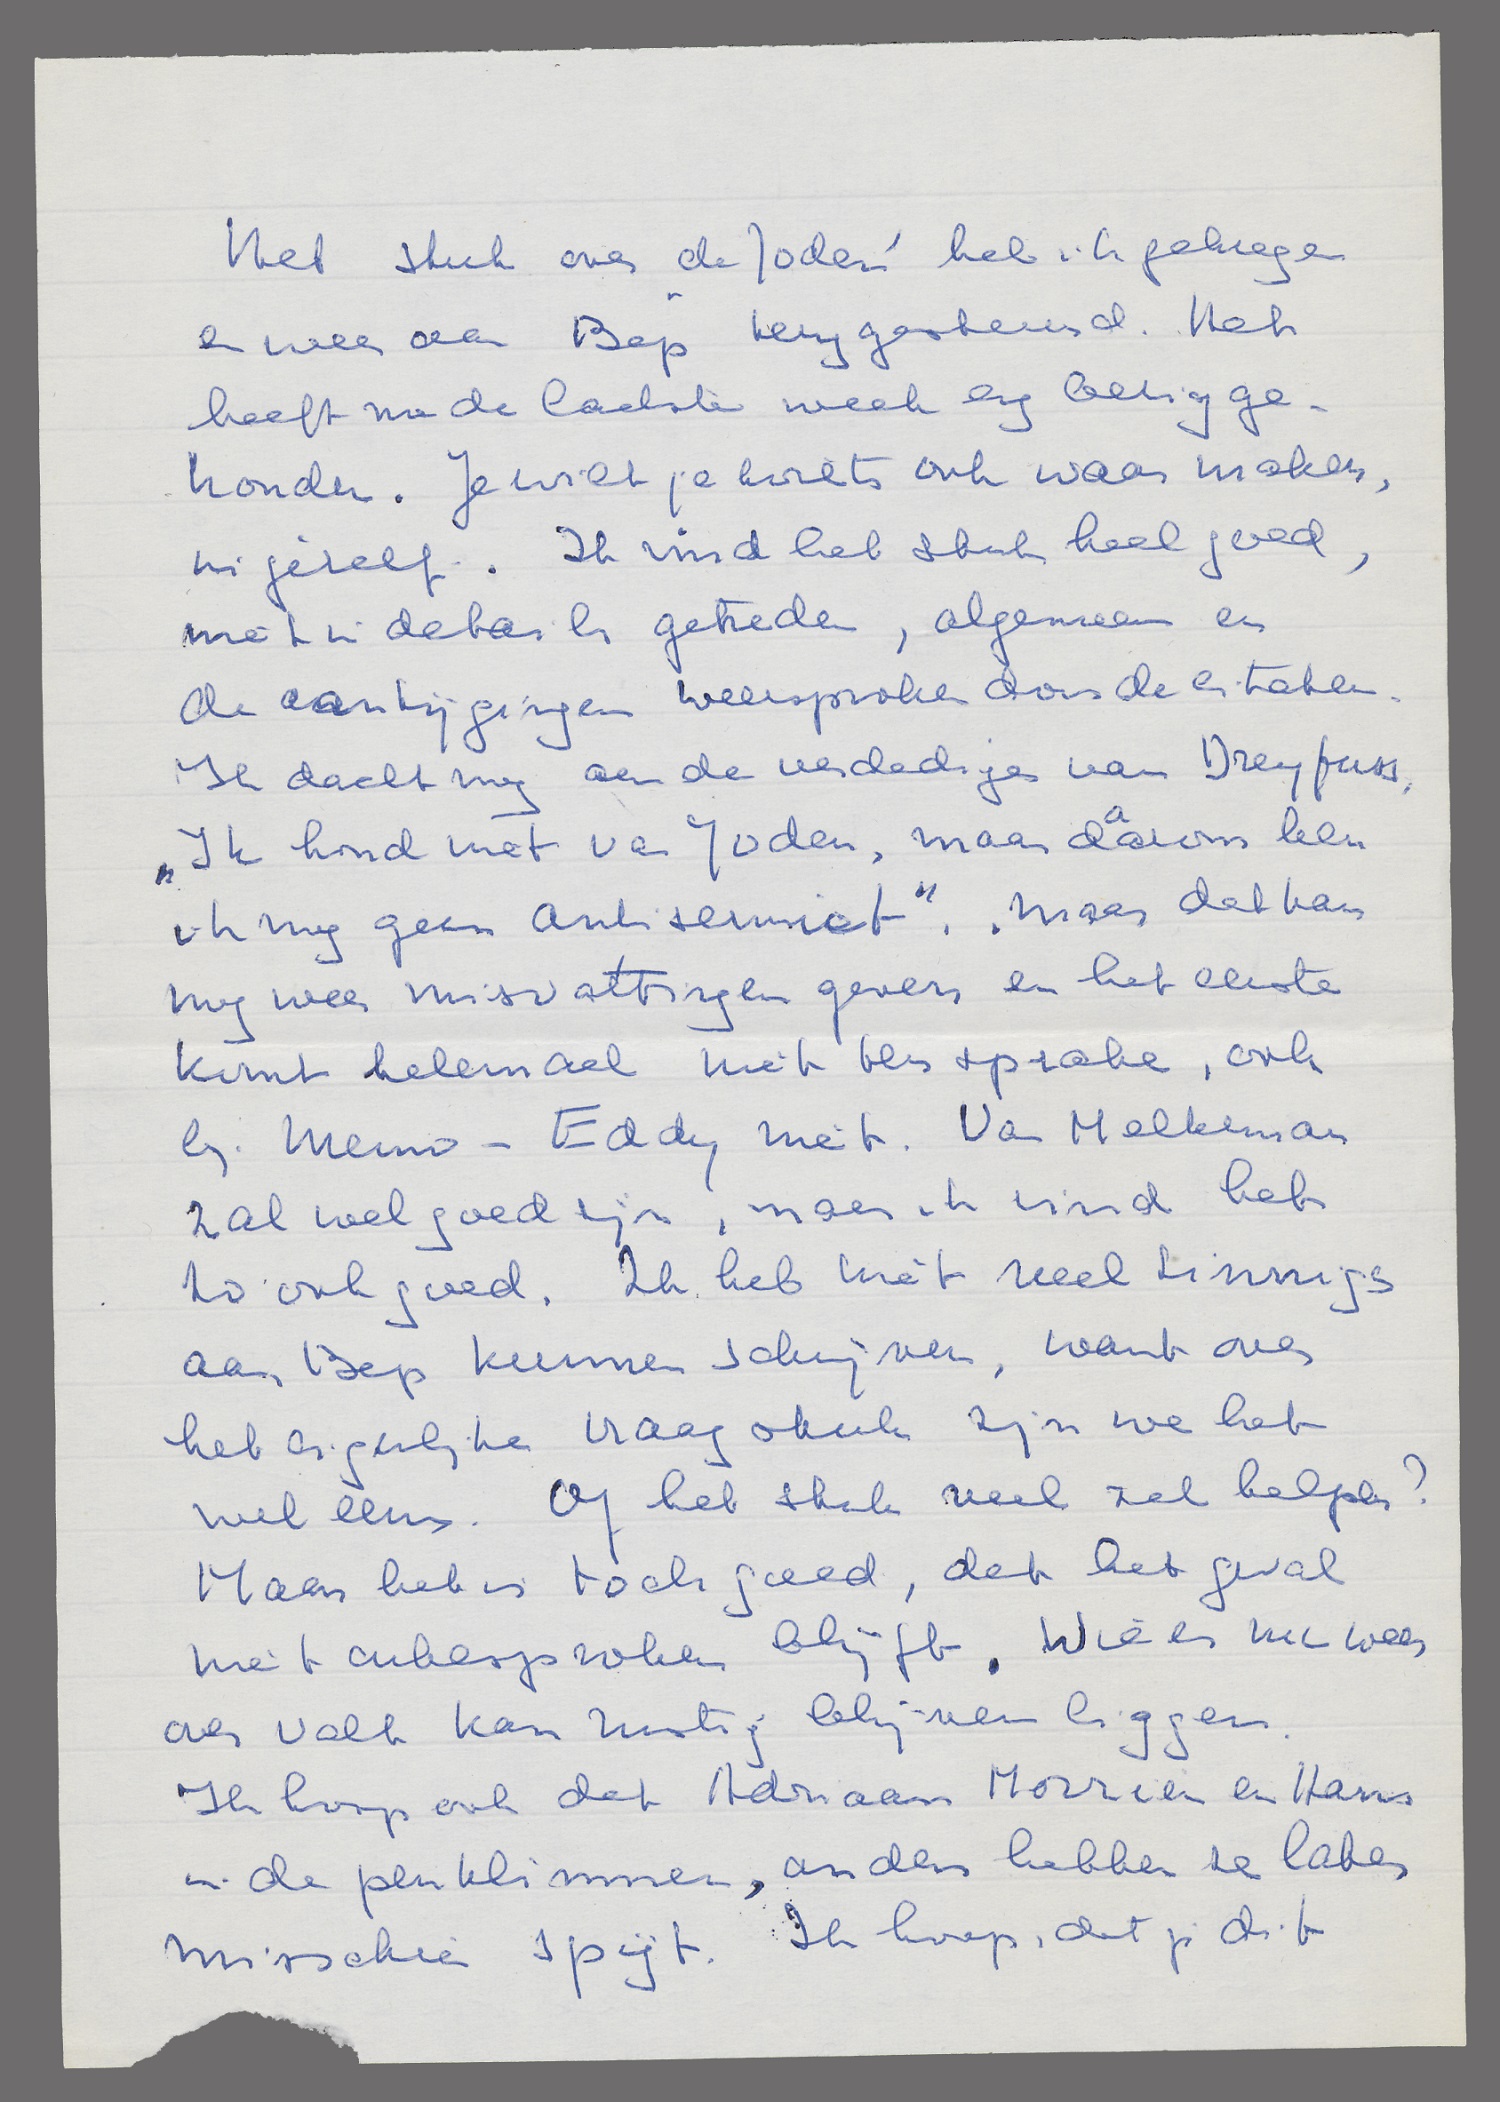 Het stuk over de Joden" heb ik gekregen
en weer aan Bep teruggestuurd. Het
heeft me de laatste week erg bezig ge-
houden. Je wilt je toets ook waar maken,
in jezelf. Ik vind het stuk heel goed,
niet in details getreden, algemeen en
de aantijgingen weersproken door de citaten.
Ik dacht nog aan de verdediger van Dreyfuss,
„Ik houd niet van Joden, maar daarom ben
ik nog geen antisemiet". Maar dat kan
nog weer misvattingen geven en het eerste
komt helemaal niet ter sprake, ook
bij Menno - Eddy niet. Van Melkman
zal wel goed zijn, maar ik vind het
zo ook goed. Ik heb niet veel zinnigs
aan Bep kunnen schrijven, want over
het eigenlijke vraagstuk zijn we het
wel eens. Of het stuk veel zal helpen?
Maar het is toch goed, dat het geval
niet onbesproken blijft. Wie er nu weer
over valt kan rustig blijven liggen.
Ik hoop ook dat Adriaan Morriën en Hans
in de pen klimmen, anders hebben ze later
misschien spijt. Ik hoop, dat je dit